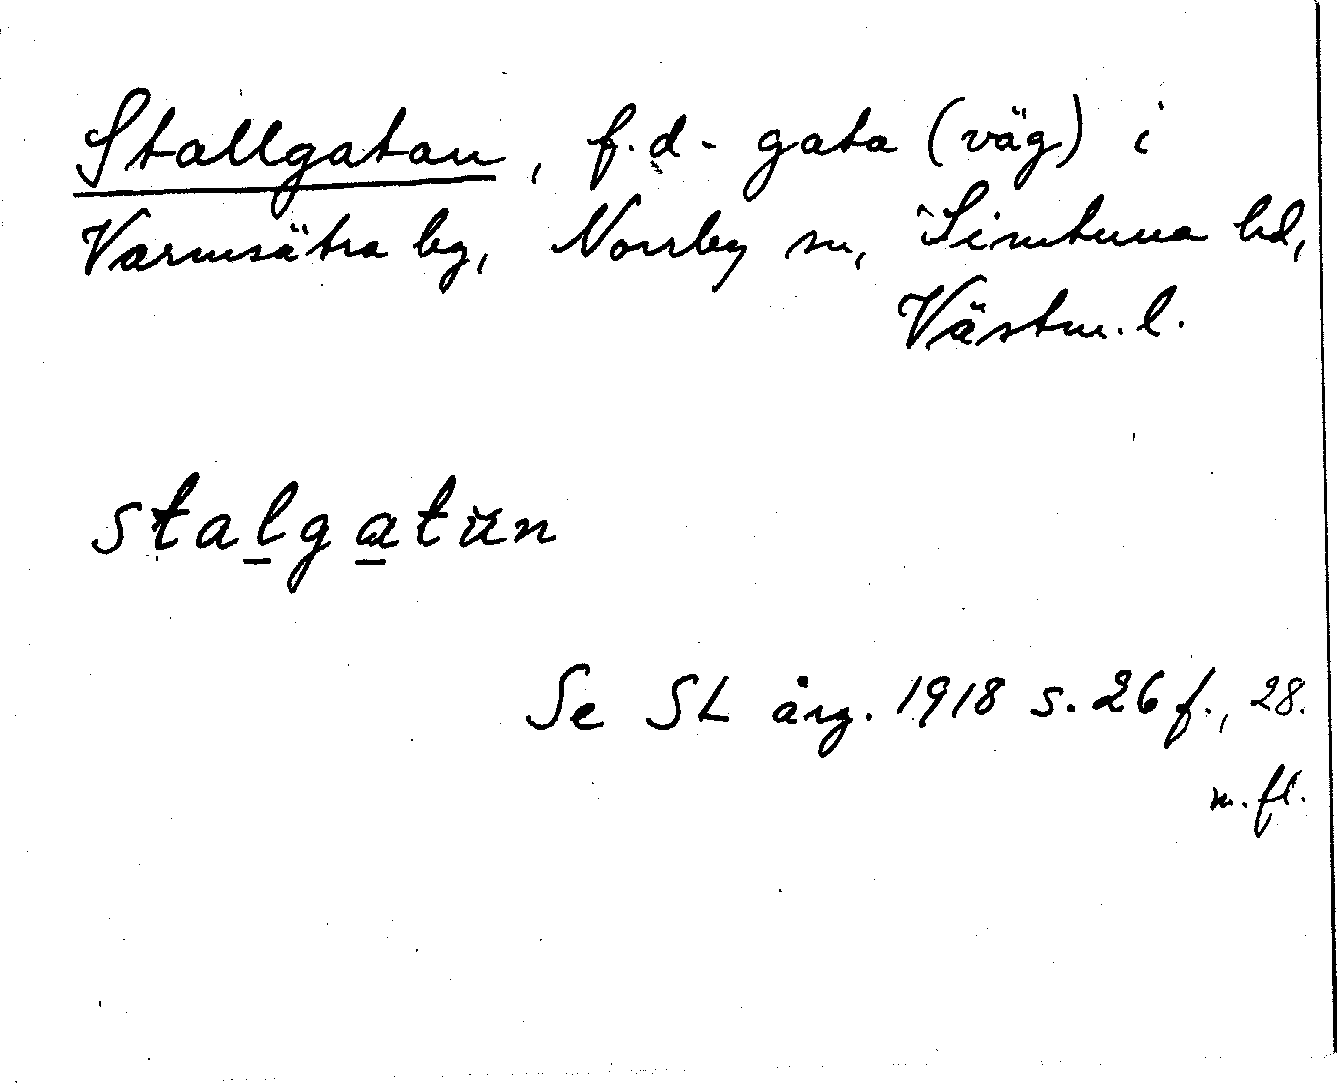 Stallgatan, f.d. gata (väg) i
Varmsätra by, Norrby sn, Simtuna hd,
Västm. l.
stalgatän
Se SL årg. 1918 s. 26 f., 28.
m.fl.